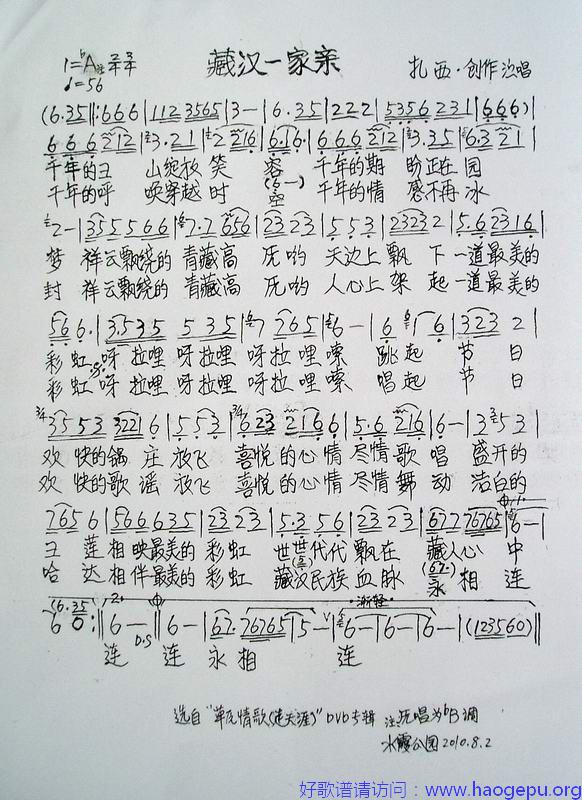 藏汉一家亲
1=♭A 2/4 3/4
♩=56
扎西·创作演唱
(6.35‖:666|112 3565|3-|6.35|222|5356 231|666)|
666 212|3.21|2 216|616|666 212|3.35|63 21|
千年的王 山绽放 笑 容 千年的期 盼正在 园
千年的呼 唤穿越 时 空 千年的情 感不再 冰
2-|355566|7.7 656|23 23|553|2323 2|5.6 2316|
梦 祥云飘绕的 青藏高 原哟 天边上飘 下 一道最美的
封 祥云飘绕的 青藏高 原哟 人心上架 起 一道最美的
56 6.|3.535 535|7 765|6-|6 16|323 2|
彩虹 呀拉哩 呀拉哩 呀拉哩嗦 跳起 节日
彩虹 呀拉哩 呀拉哩 呀拉哩嗦 唱起 节日
3/4 3553 3221 6|553|3/4 6 23 2166|5.6 216|6-|3 353|
欢快的锅庄 放飞 喜悦的心情 尽情歌唱 盛开的
欢快的歌谣 放飞 喜悦的心情 尽情舞动 洁白的
765 6|566635|23 23|5.3 56|23 23|677 76765|6-|
王莲 相映最美的 彩虹 世世代代 飘在 藏人心 中
哈达 相伴最美的 彩虹 藏汉民族 血脉 永相 连
(6.35
6 0:‖6-‖6-|67. 76765|5-|6-|6-|6-|(123560)‖
2. D.S 渐轻
连 连 永相 连
选自“草原情歌(走天涯)”DVD专辑 注:原唱为♭B调
水霞公园2010.8.2
好歌谱请访问：www.haogepu.org